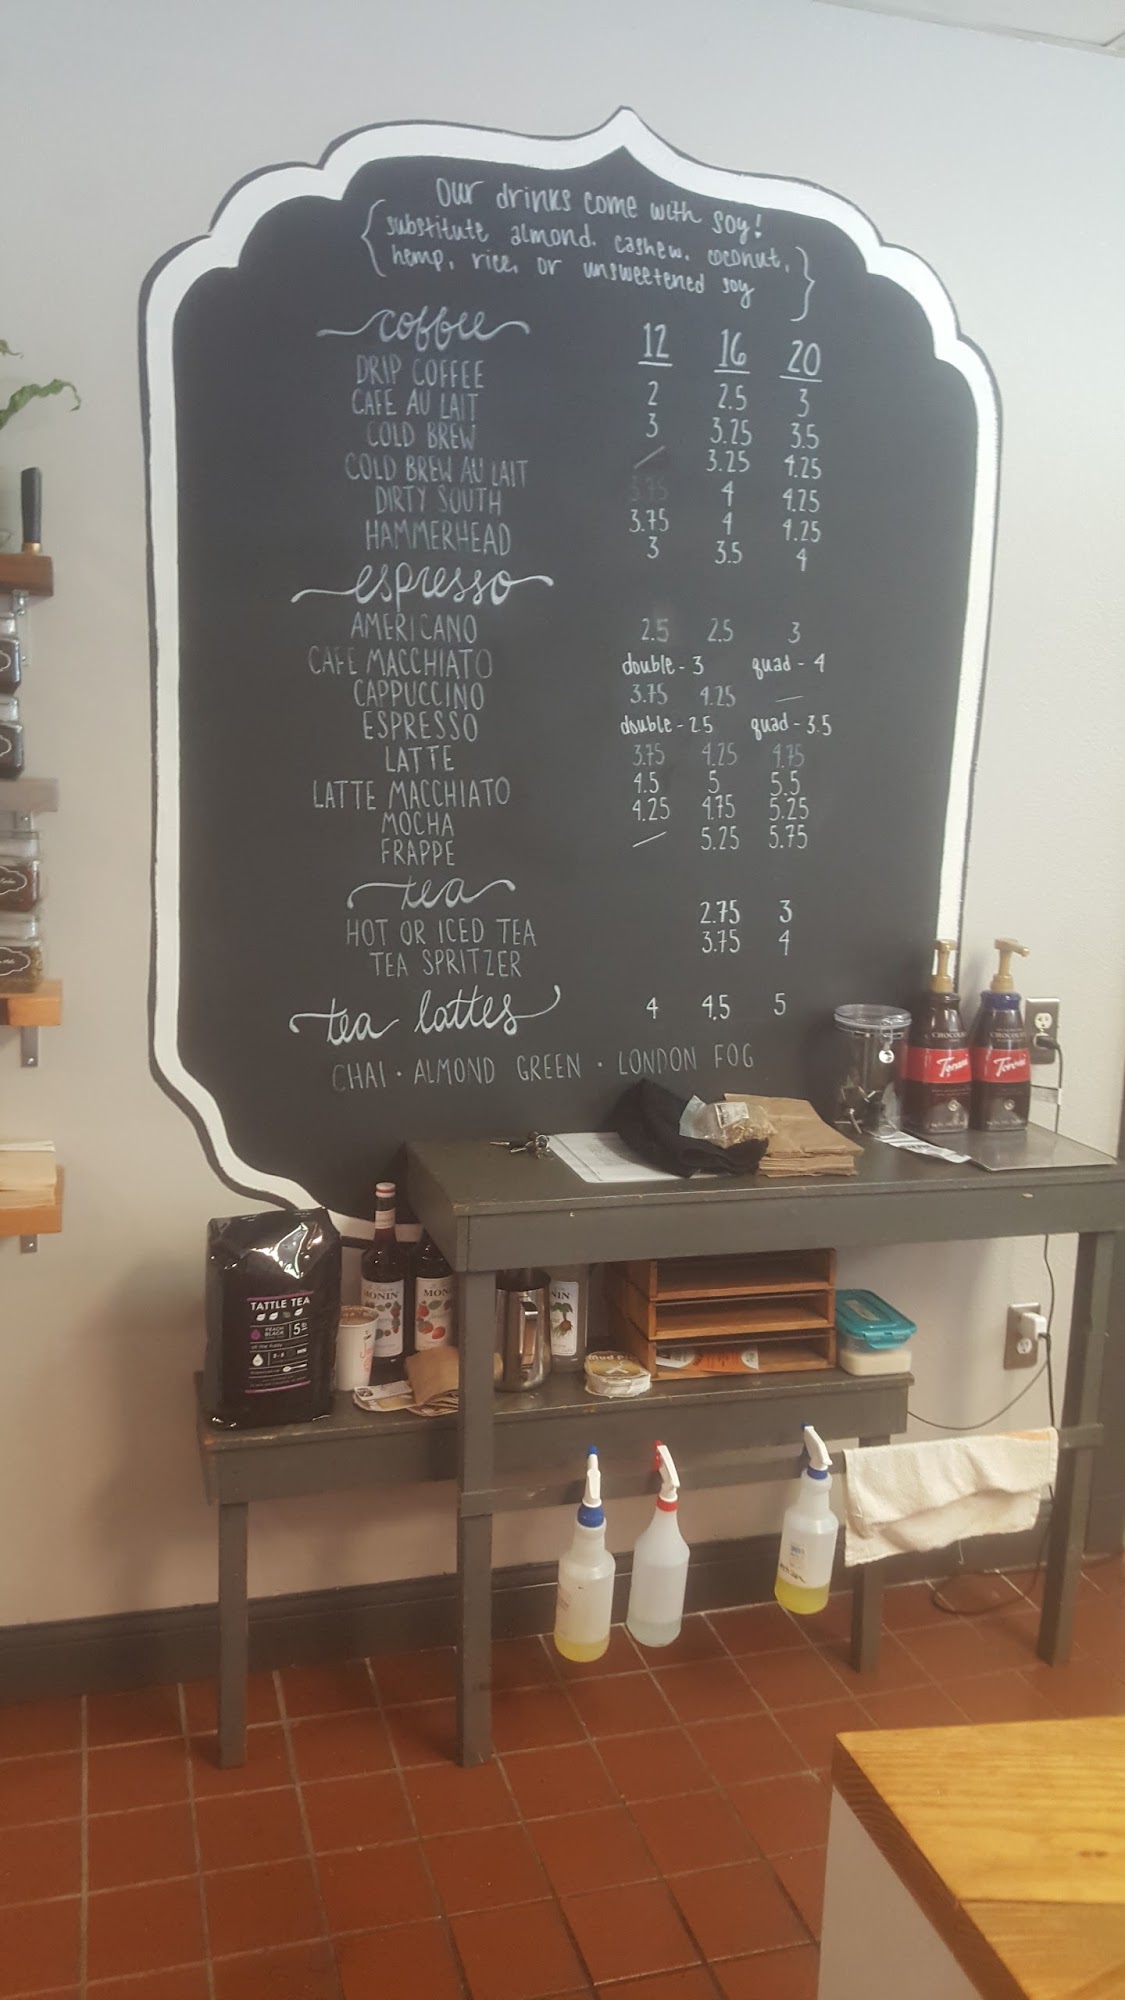 Our drinks come with soy!
{substitute almond. cashew. coconut,
hemp, rice, or unsweetened soy}
coffee 12 16 20
DRIP COFFEE 2 2.5 3
CAFE AU LAIT 3 3.25 3.5
COLD BREW / 3.25 4.25
COLD BREW AU LAIT 3.75 4 4.25
DIRTY SOUTH 3.75 4 4.25
HAMMERHEAD 3 3.5 4
espresso
AMERICANO 2.5 2.5 3
CAFE MACCHIATO double - 3 quad - 4
CAPPUCCINO 3.75 4.25 —
ESPRESSO double - 2.5 quad - 3.5
LATTE 3.75 4.25 4.75
LATTE MACCHIATO 4.5 5 5.5
MOCHA 4.25 4.75 5.25
FRAPPE / 5.25 5.75
tea
HOT OR ICED TEA 2.75 3
TEA SPRITZER 3.75 4
tea lattes 4 4.5 5
CHAI · ALMOND GREEN · LONDON FOG
CHOCOLATE
Torani
CHOCOLATE
Torani
TATTLE TEA
PEACH
BLACK
5
MONIN
MONIN